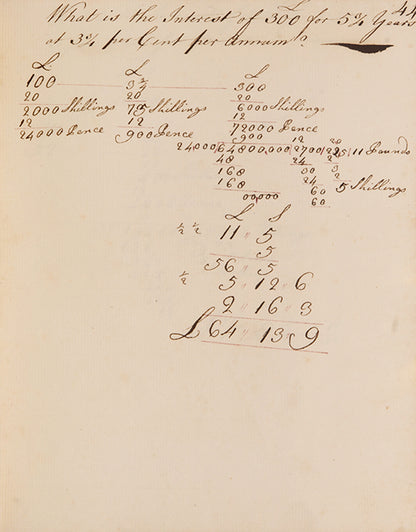 44
What is the Interest of 300£ for 5¾ Years
at 3¾ per Cent per annum?
£ £ £
100 3¾ 300
20 20 20
2000 Shillings 75 Shillings 6000 Shillings
12 12 12
24000 Pence 900 Pence 72000 Pence
900
24000)64800,000(2700(225(11 Pounds
48 24 2
168 30 5 Shillings
168 24
00,000 60
60
£ S
½ ½ 11 " 5
5
56 " 5
½ 5 " 12 " 6
2 " 16 " 3
£64 " 13 " 9